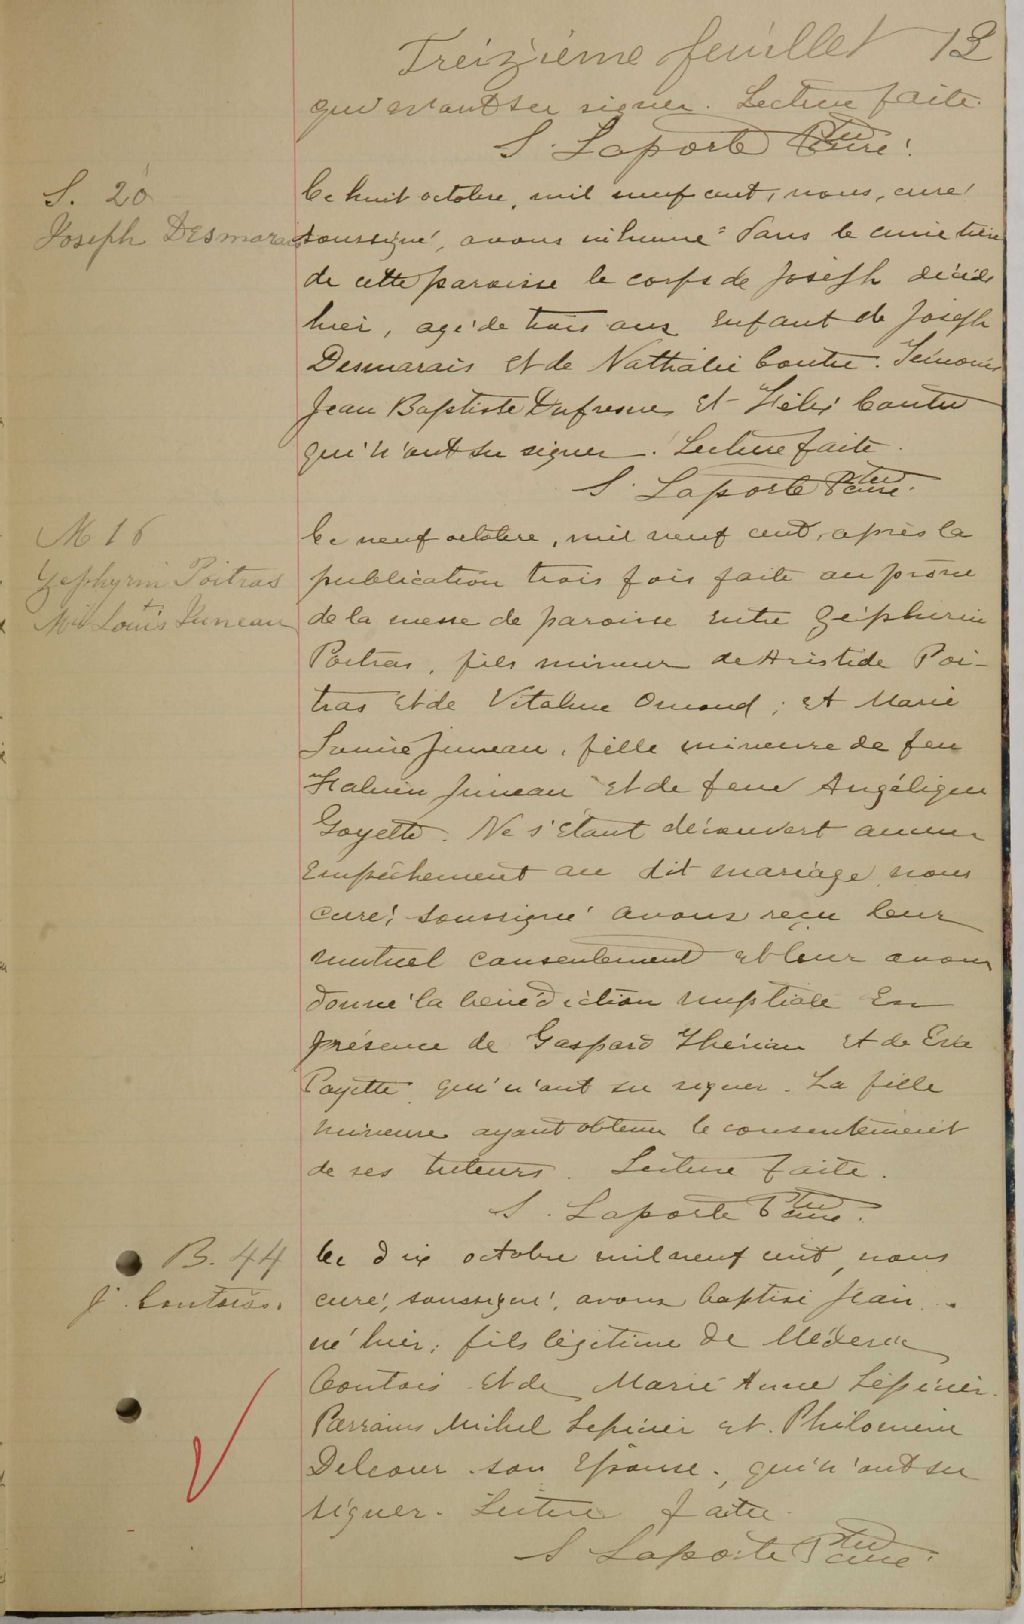 Treizième feuillet 13
qui n'ont su signer. Lecture faite.
S. Laporte Ptre curé.
S. 20
Joseph Desmarais
Le huit octobre, mil neuf cent, nous, curé
soussigné, avons inhumé dans le cimetière
de cette paroisse le corps de Joseph décédé
hier, agé de trois ans enfant de Joseph
Desmarais et de Nathalie Coutu. Témoins
Jean Baptiste Dufresne et Félix Coutu
qui n'ont su signer. Lecture faite.
S. Laporte Ptre curé.
M 16
Zephyrin Poitras
M. Louis Juneau
Le neuf octobre, mil neuf cent, après la
publication trois fois faite au prône
de la messe de paroisse entre Zéphirin
Poitras, fils mineur de Aristide Poi-
tras et de Vitaline Omond; et Marie
Louise Juneau, fille mineure de feu
Juneau et de feue Angélique
Goyette. Ne s'étant découvert aucun
empêchement au dit mariage nous
curé, soussigné avons reçu leur
mutuel consentement et leur avons
donné la bénédiction nuptiale en
présence de Gaspard Thériau et de Eva
Payette qui n'ont su signer. La fille
mineure ayant obtenu le consentement
de ses tuteurs. Lecture faite.
S. Laporte Ptre curé.
B. 44
J. Contois.
Le dix octobre mil neuf cent, nous
curé, soussigné, avons baptisé Jean
né hier, fils légitime de Médéric
Contois et de Marie Anne Lépicier.
Parrains Michel Lépicier et Philomène
Delcour son épouse, qui n'ont su
signer. Lecture faite.
S Laporte Ptre curé.